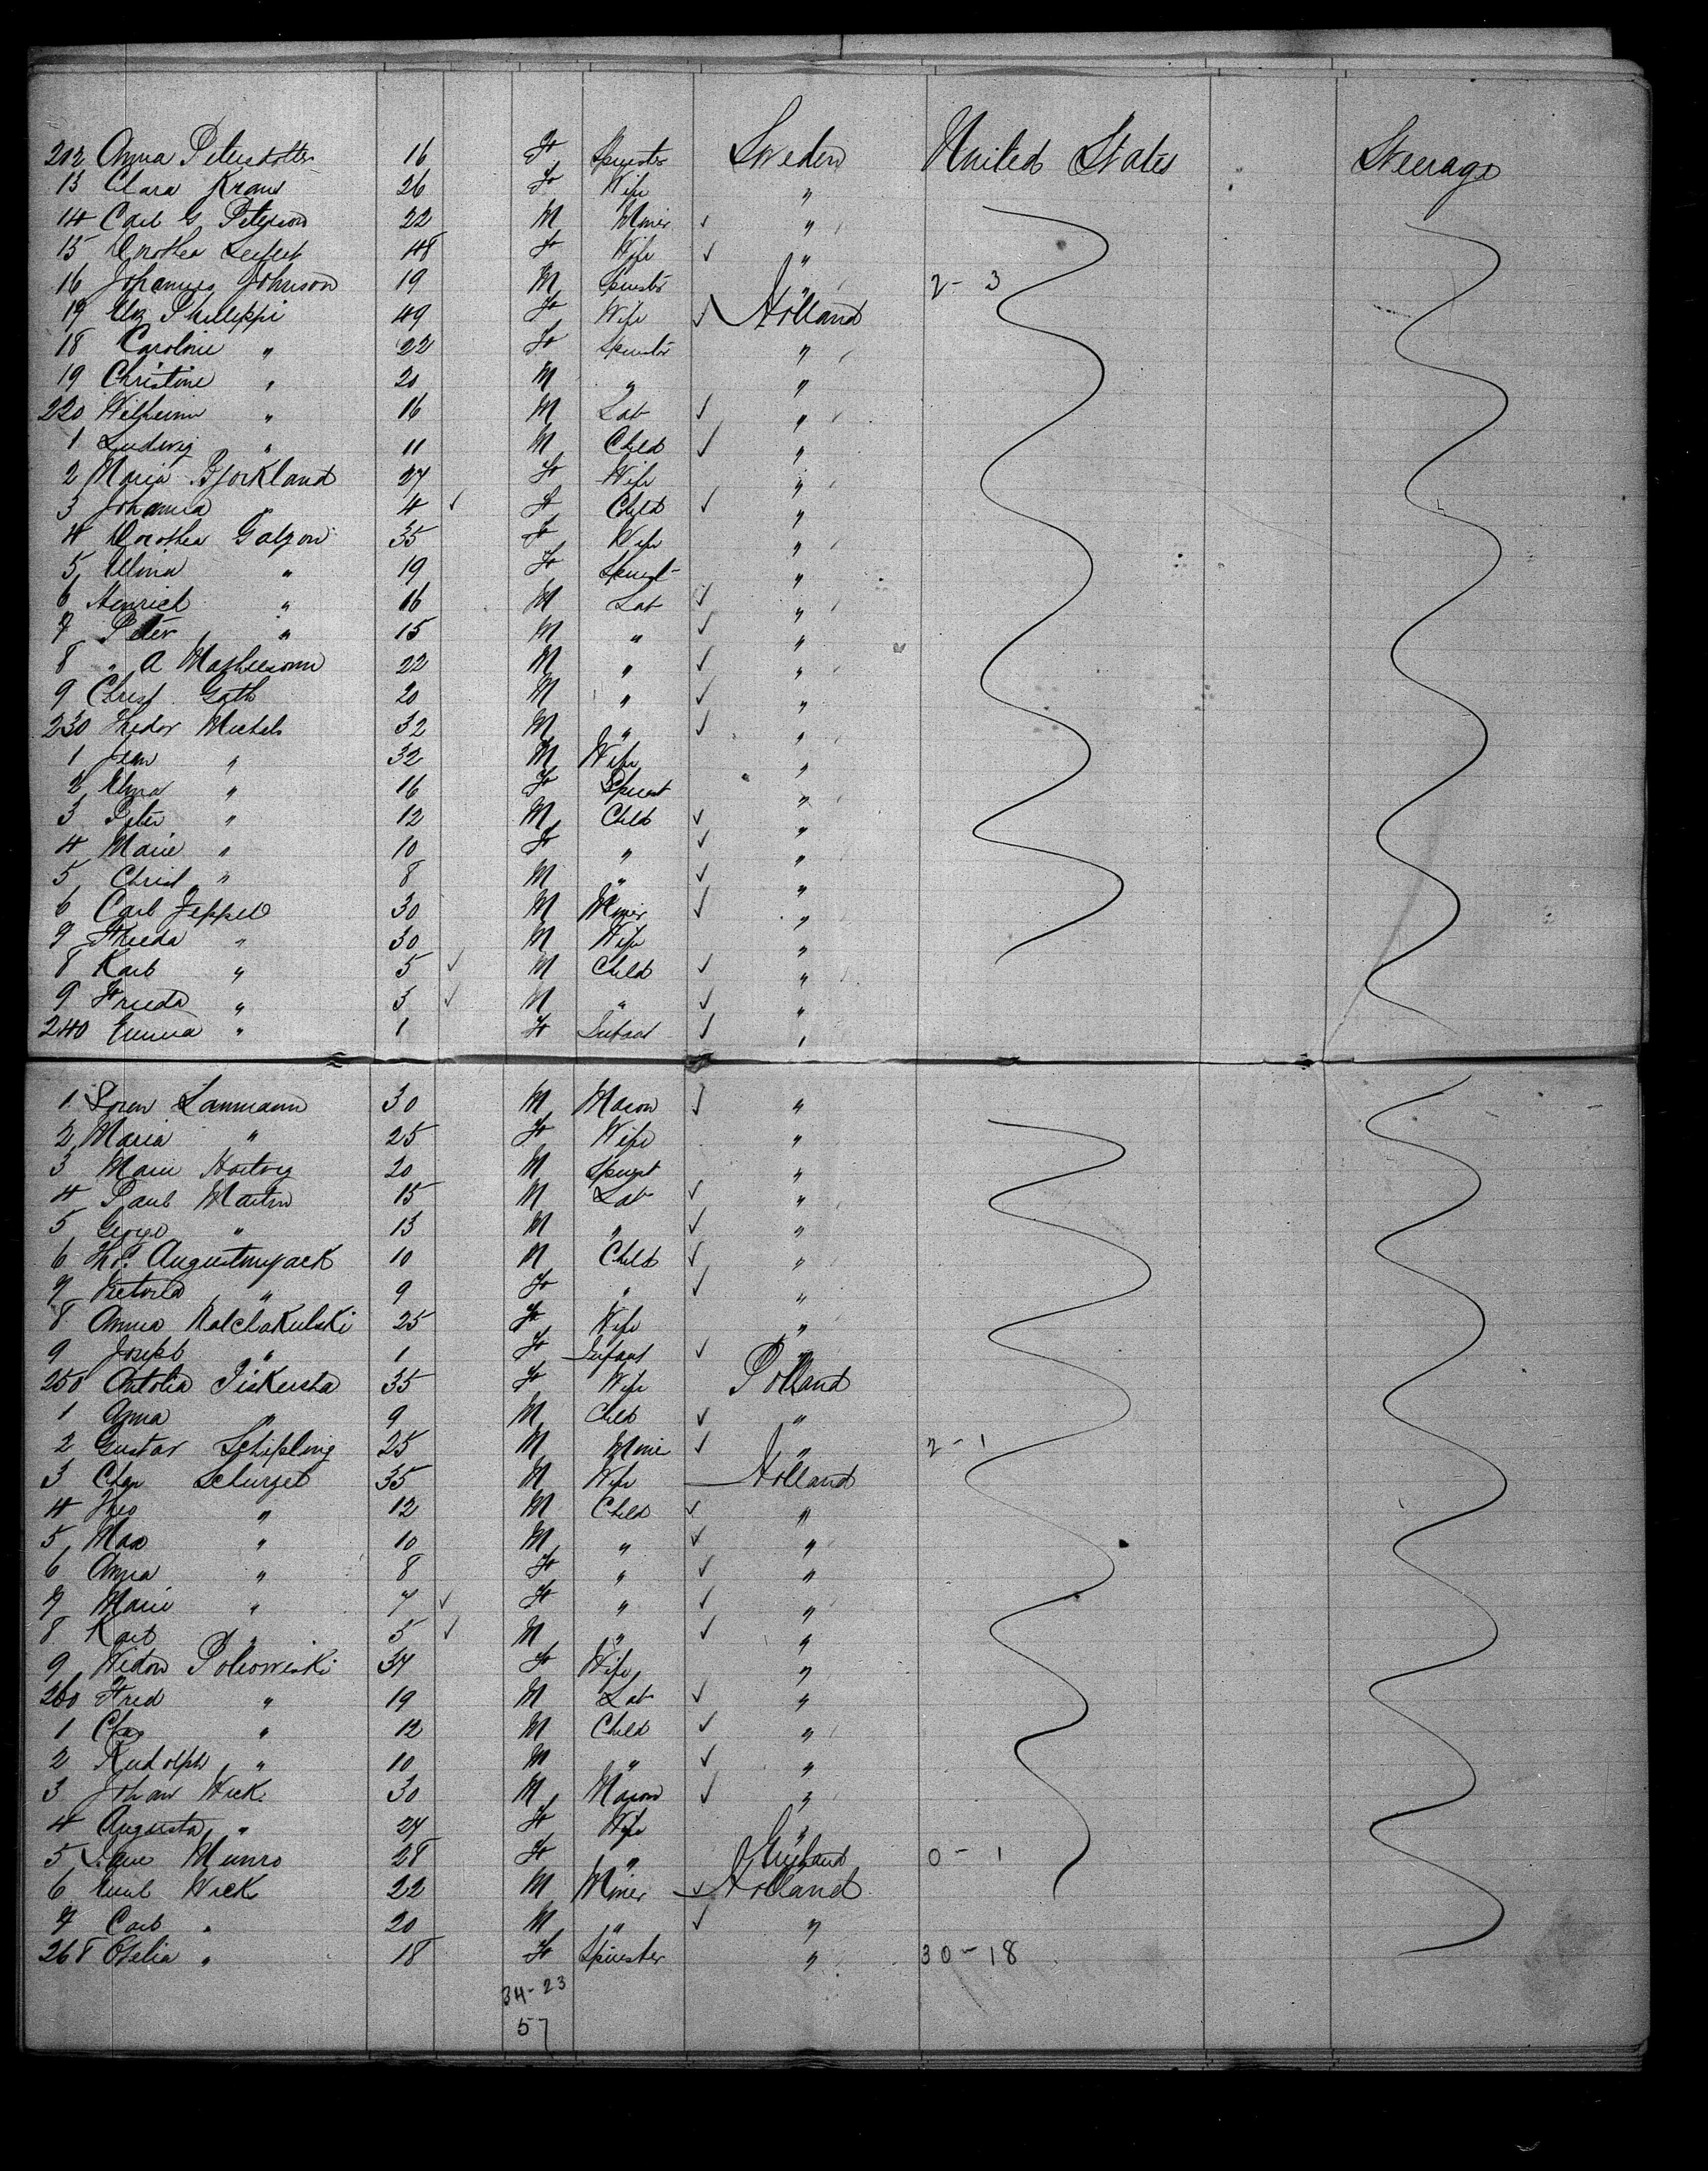 212 Anna Petersdotter 16 F Spinster Sweden United States Steerage
13 Clara Kraus 26 F Wife "
14 Carl G Peterson 22 M Miner ✓ "
15 Dorothea Seifert 48 F Wife ✓ "
16 Johannes Johnson 19 M Spinster " 2 - 3
17 Eliz Philippi 49 F Wife ✓ Holland
18 Caroline " 22 F Spinster "
19 Christine " 20 M " "
220 Wilhelm " 16 M Lab ✓ "
1 Ludwig " 11 M Child ✓ "
2 Maria Bjorkland 27 F Wife "
3 Johanna " 4 ✓ F Child ✓ "
4 Dorothea Galzow 35 F Wife "
5 Elina " 19 F Spinst "
6 Henrich " 16 M Lab ✓ "
7 Peter " 15 M " ✓ "
8 " A Mathiesonn 22 M " ✓ "
9 Christ Goth 20 M " ✓ "
230 Thedor Michels 32 M " ✓ "
1 Jean " 32 M Wife "
2 Elyna " 16 F Spinst "
3 Peter " 12 M Child ✓ "
4 Marie " 10 F " ✓ "
5 Christ " 8 M " ✓ "
6 Carl Jeppel 30 M Miner ✓ "
7 Frieda " 30 M Wife "
8 Karl " 5 ✓ M Child ✓ "
9 Frieda " 3 ✓ M " ✓ "
240 Emma " 1 F Infant ✓ "
1 Soren Lanmann 30 M Mason ✓ "
2 Maria " 25 F Wife "
3 Marie Hartvig 20 M Spinst "
4 Paul Martin 15 M Lab ✓ "
5 George " 13 M " ✓ "
6 Augustinyack 10 M Child ✓ "
7 " 9 F " ✓ "
8 Anna Kalchakulski 25 F Wife "
9 Joseph " 1 F Infant ✓ "
250 Antolia Piskersha 35 F Wife Polland
1 Anna " 9 M Child ✓ "
2 Gustav Schipling 25 M Mine ✓ " 2 - 1
3 Chas Schurzel 35 M Wife Holland
4 Theo " 12 M Child ✓ "
5 Max " 10 M " ✓ "
6 Anna " 8 F " ✓ "
7 Marie " 7 ✓ F " ✓ "
8 Karl " 5 ✓ M " ✓ "
9 Widow Polrowiski 34 F Wife "
260 Fred " 19 M Lab ✓ "
1 Chas " 12 M Child ✓ "
2 Rudolph " 10 M " ✓ "
3 Johan Wick 30 M Mason ✓ "
4 Augusta " 24 F Wife "
5 Jane Munro 28 F " England 0 - 1
6 Emil Wick 22 M Miner ✓ Holland
7 Carl " 20 M " ✓ "
268 Otelia " 18 F Spinster " 30 - 18
34 - 23
57